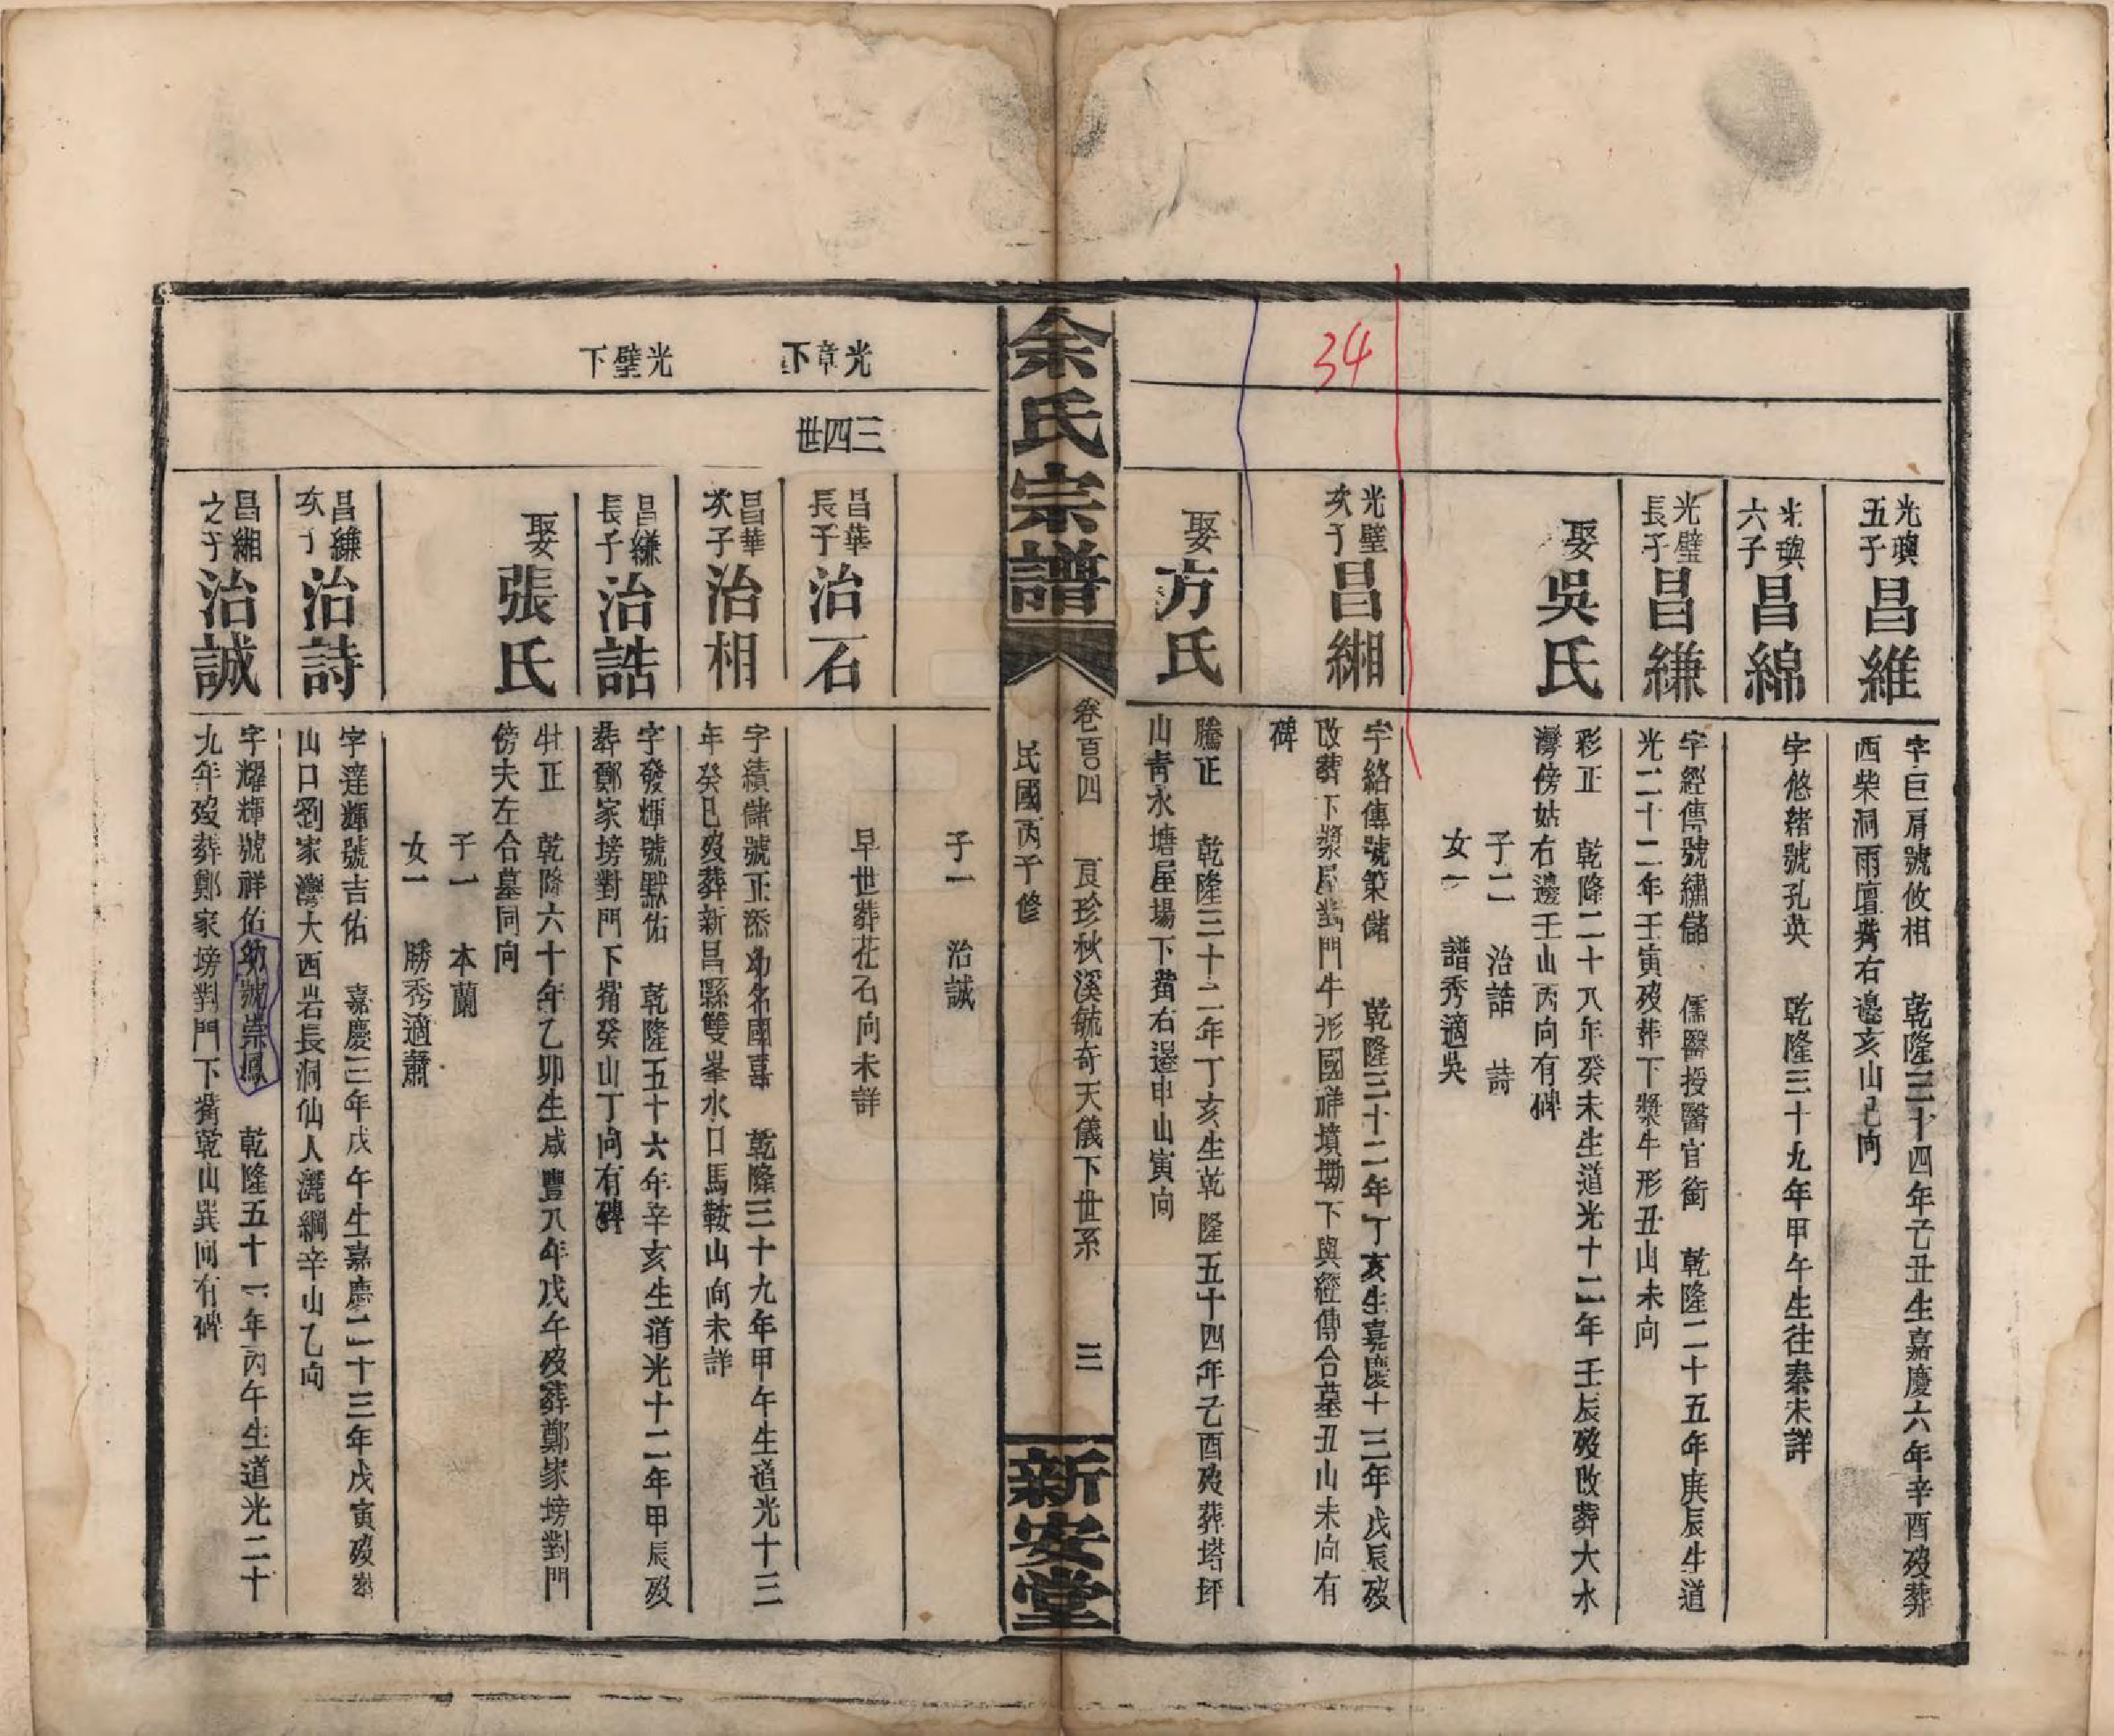 34
光璵
五子
昌維
字巨肩號攸相　乾隆三十四年己丑生嘉慶六年辛酉歿葬
西柴洞雨壇背右邊亥山巳向
光璵
六子
昌綿
字悠緒號孔英　乾隆三十九年甲午生往秦未詳
光璧
長子
昌縑
字經傳號繡儲　儒醫授醫官銜　乾隆二十五年庚辰生道
光二十二年壬寅歿葬下漿牛形丑山未向
娶
吳氏
彩正　乾隆二十八年癸未生道光十二年壬辰歿改葬大水
灣傍姑右邊壬山丙向有碑
子二　治誥　詩
女一　譜秀適吳
光璧
次子
昌緗
字絡傳號策儲　乾隆三十二年丁亥生嘉慶十三年戊辰歿
改葬下漿屋對門牛形國祥墳墈下與經傳合墓丑山未向有
碑
娶
方氏
騰正　乾隆三十二年丁亥生乾隆五十四年己酉歿葬塔坪
山青水塘屋場下背右邊申山寅向
余氏宗譜
卷百四　良珍秋溪毓奇天儀下世系　三
民國丙子修
新安堂
子一　治誠
光章下
三四世
昌華
長子
治石
早世葬花石向未詳
昌華
次子
治相
字績儲號正添幼名國喜　乾隆三十九年甲午生道光十三
年癸巳歿葬新昌縣雙峯水口馬鞍山向未詳
光璧下
昌縑
長子
治誥
字發輝號默佑　乾隆五十六年辛亥生道光十二年甲辰歿
葬鄭家塝對門下背癸山丁向有碑
娶
張氏
牡正　乾隆六十年乙卯生咸豐八年戊午歿葬鄭家塝對門
傍夫左合墓同向
子一　本蘭
女一　勝秀適蕭
昌縑
次子
治詩
字達輝號吉佑　嘉慶三年戊午生嘉慶二十三年戊寅歿葬
山口劉家灣大西岩長洞仙人灑網辛山乙向
昌緗
之子
治誠
字耀輝號祥佑幼號崇鳳　乾隆五十一年丙午生道光二十
九年歿葬鄭家塝對門下背乾山巽向有碑